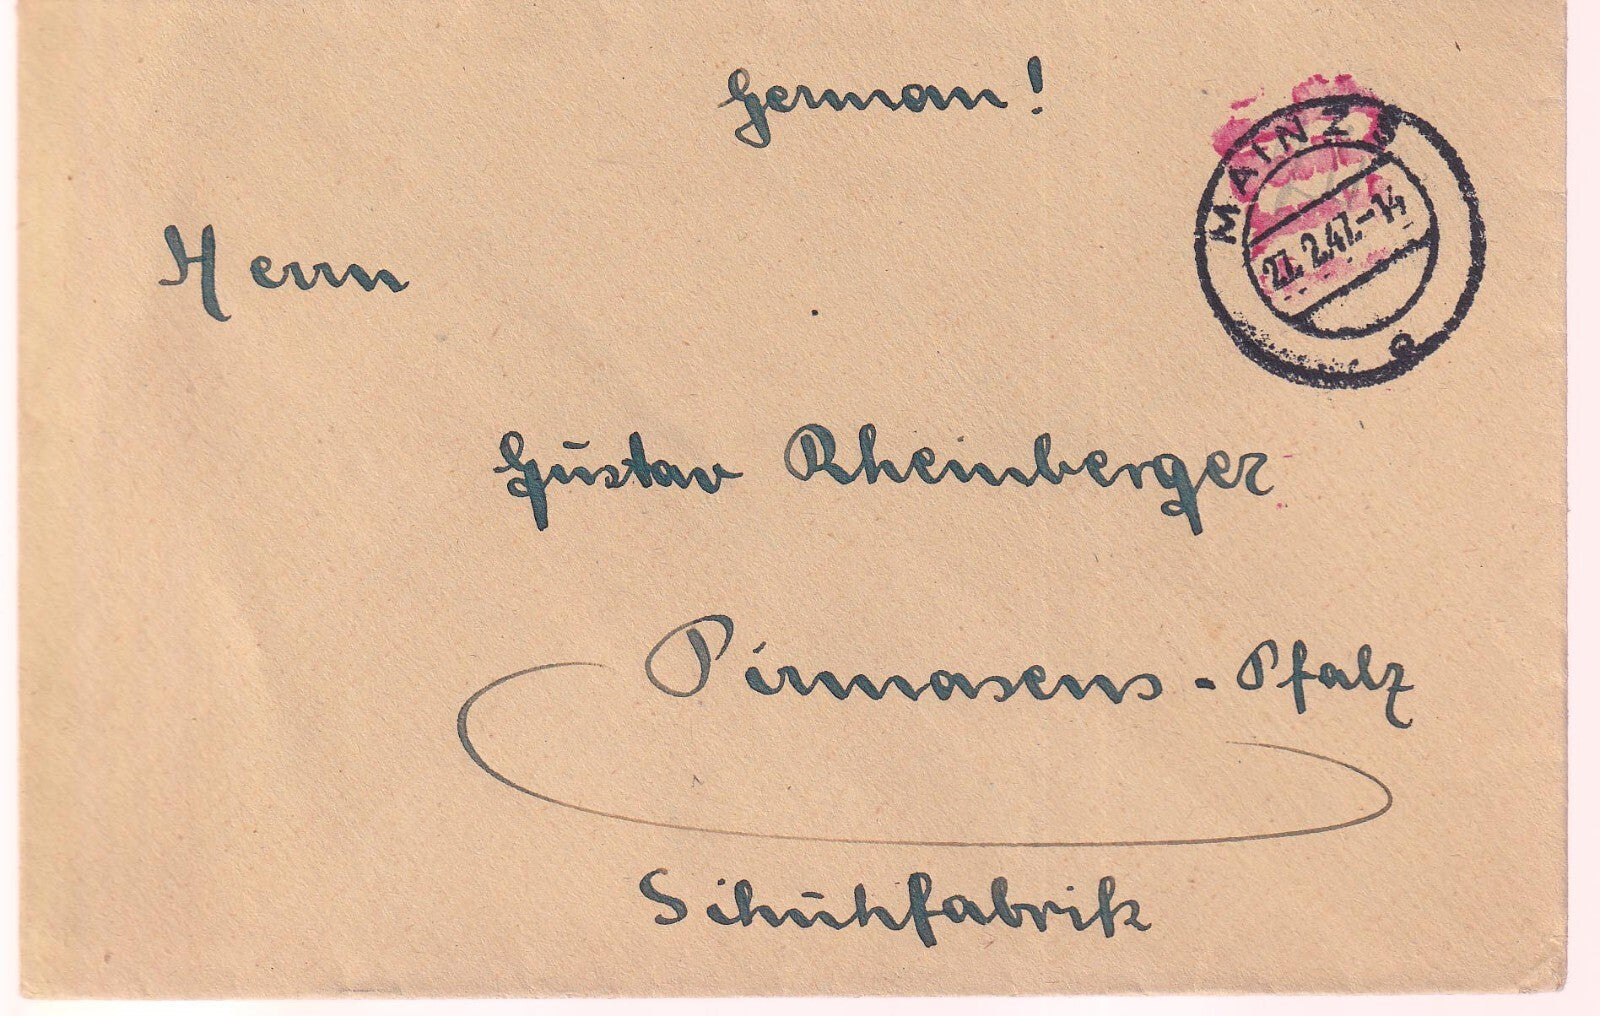 German!
MAINZ
27.2.47.-14
Herrn
Gustav Rheinberger
Pirmasens - Pfalz
Schuhfabrik